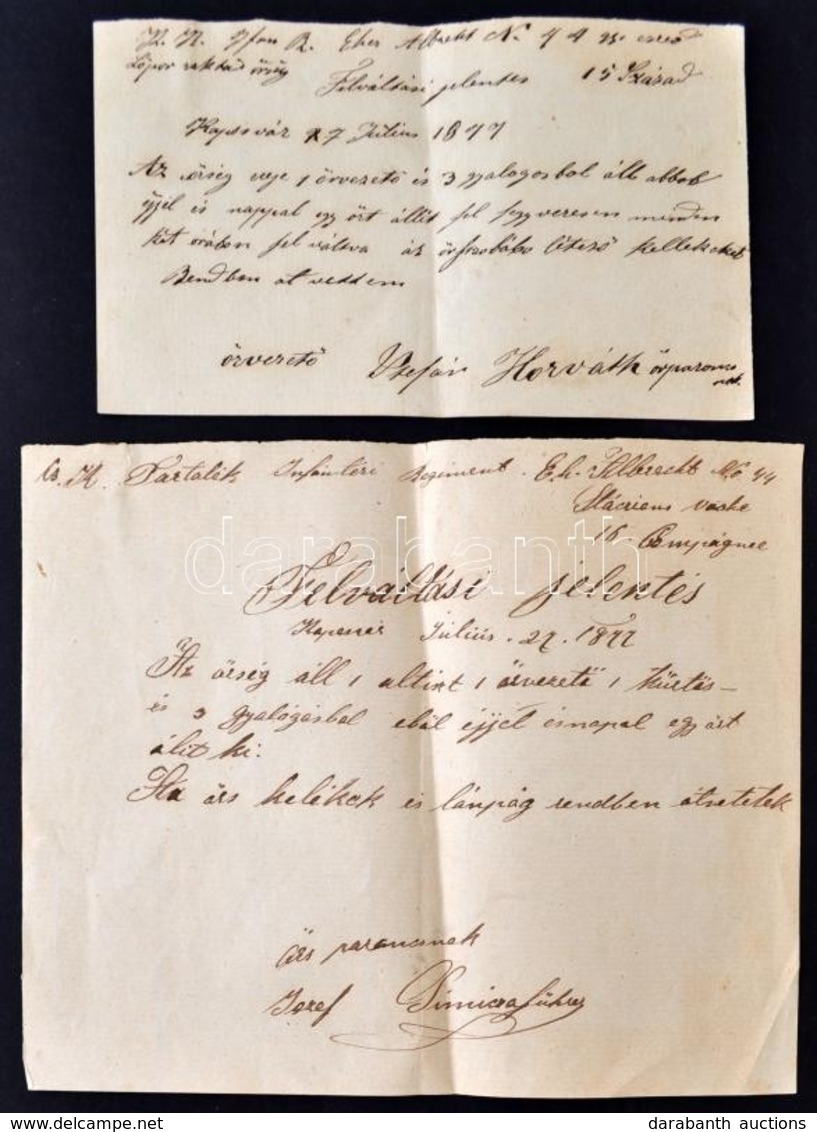 K. K. Ifan R. Eher Albrekt No 44 ik ezred
Lőpor raktár őrség 15 Század
Felváltási jelentes
Kaposvár 27 Július 1877
Az őrség ereje 1 őrvezető és 3 gyalogosbol áll abbol
éjjel és nappal egy őrt állit fel fegyveresen minden
két oráben fel váltva áz őrszobába létező kellekeket
Rendben at vettem
őrvezető Stefán Horváth őrparancs
nok.
Cs. K. Tartalék Infantéri Regiment. E.h. Albrecht No 44
Stácziens vache
15 Compágnee
Felváltási jelentés
Kaposvár Július. 27. 1877
Az őrség áll 1 altizt 1 őrvezetě 1 kürtös
és 3 gyalógásbol ebál éjjel ésnapal egy őrt
álit ki:
Az őrs kelékek és lánpág rendben átvetetek
őrs parancsnok
Jozef
darabanth
darabanth auctions